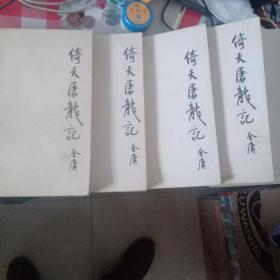 倚天屠龍記
金庸
倚天屠龍記
金庸
倚天屠龍記
金庸
倚天屠龍記
金庸